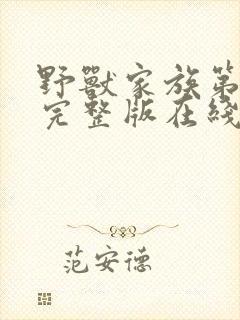 野獸家族第
完整版在綫
范安德